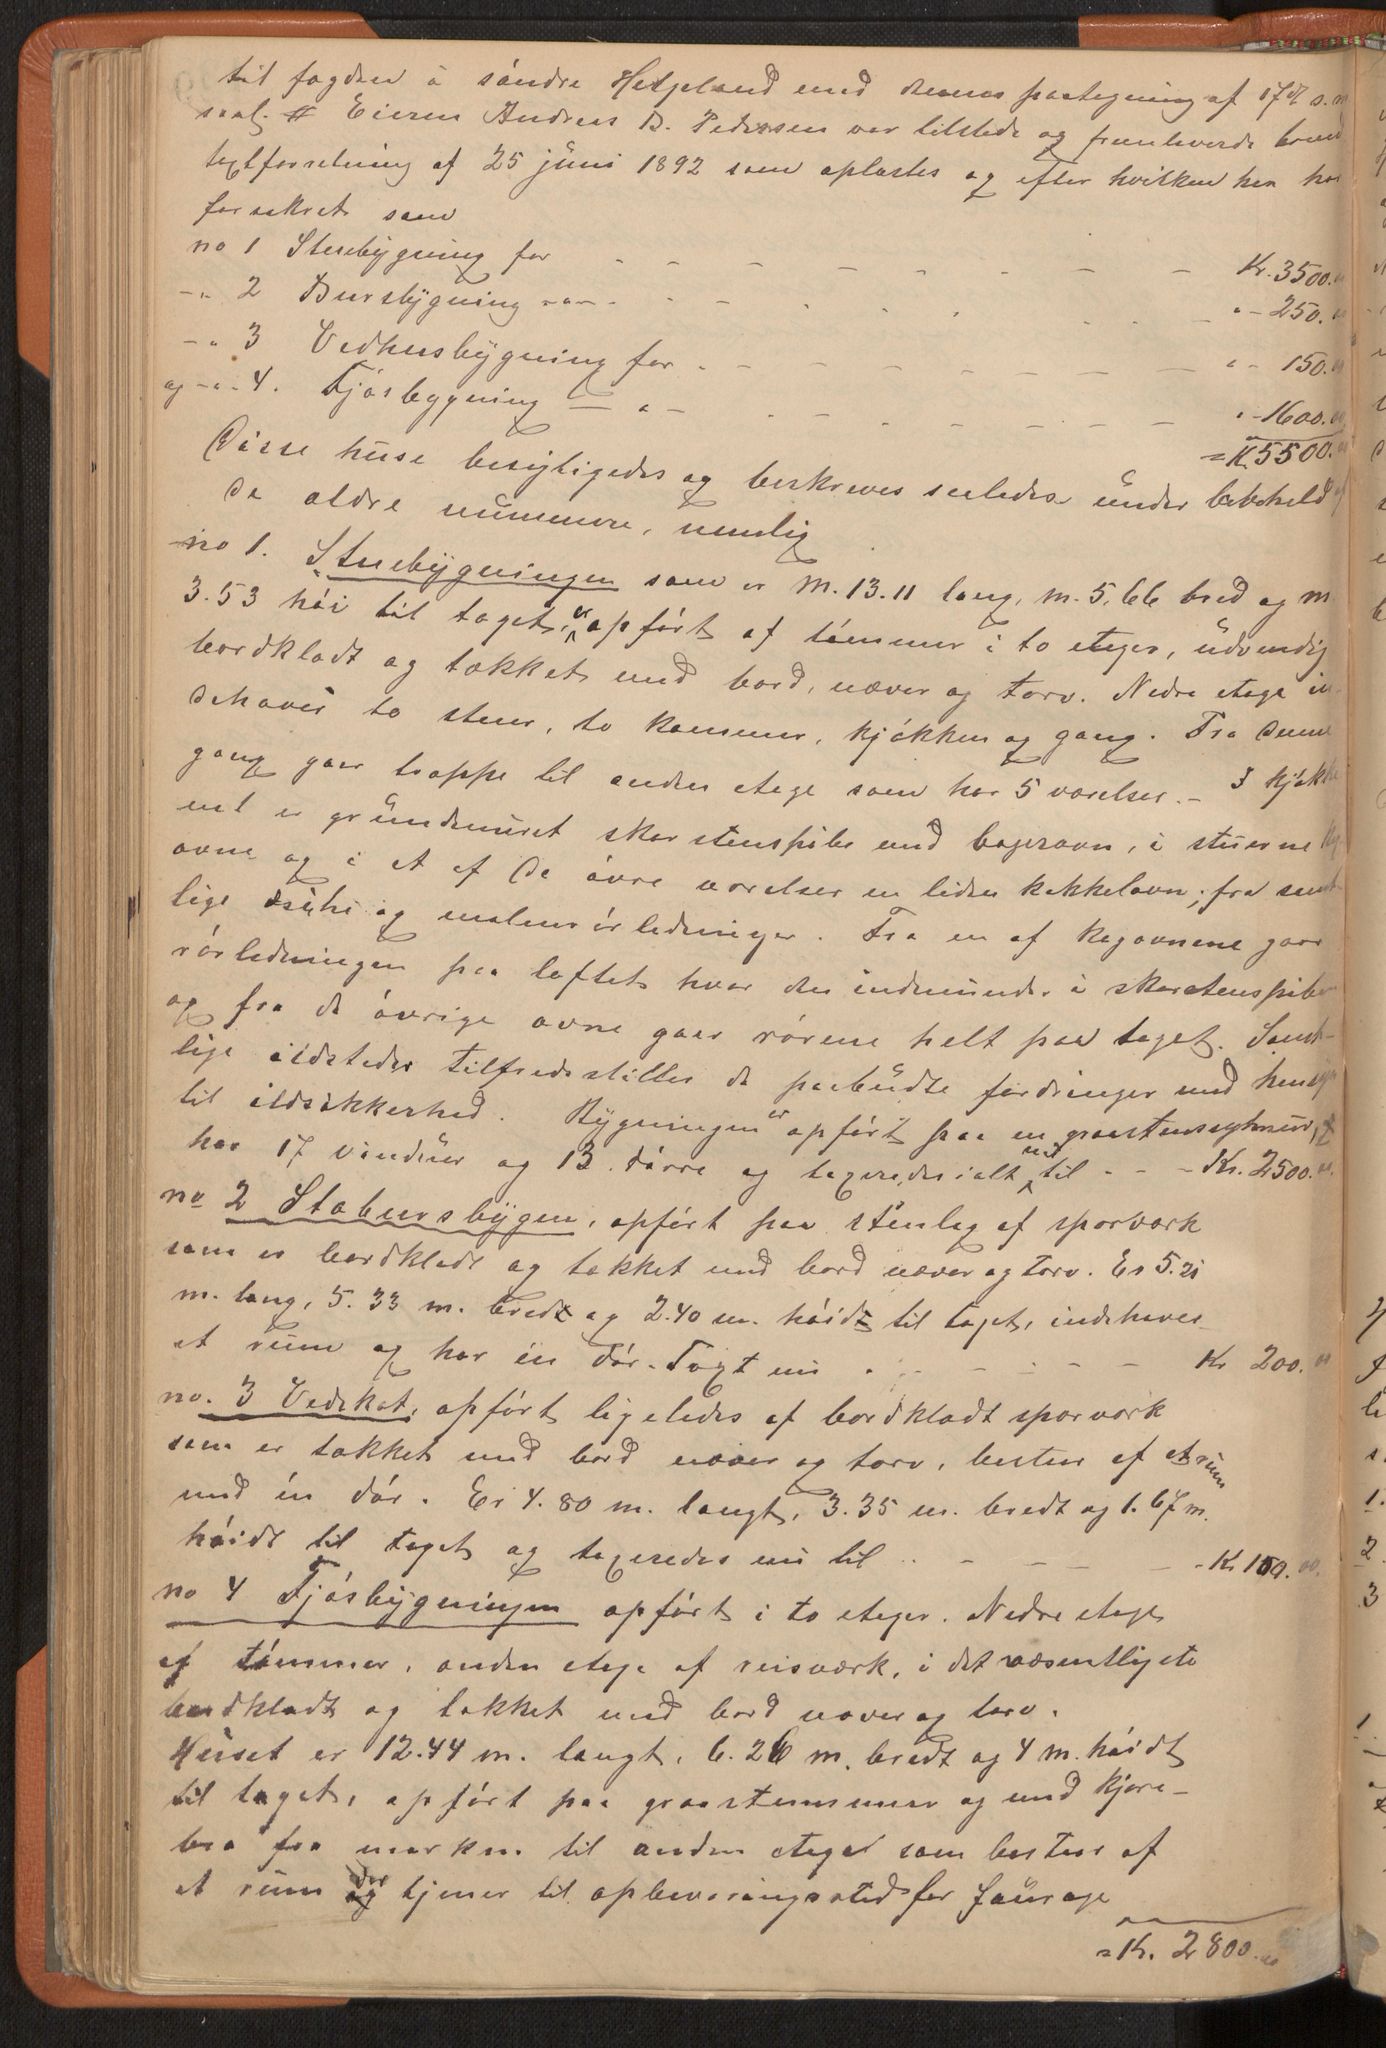 til fogden i söndre Helgeland med dennes paategning af 17 d. s. m
saal. Eieren Andreas B. Pedersen var tilstede og fremleverde brand
taxtforretning af 25 juni 1892 som oplæstes og efter hvilken han har
forsikret som
no 1 Stuebygning for - - - - - - - - Kr. 3500.00
-"- 2 Bursbygning -"- - - - - - - "- 250.00
-"- 3 Vedhusbygning for - - - - - - - "- 150.00
og -"- 4. Fjösbygning -"- - - - - - - "- 1600.00
= Kr. 5500.00
Disse huse besigtigedes og beskreves saaledes under bibehold af
de ældre nummere, nemlig
no 1. Stuebygningen som er M. 13.11 lang, m. 5,66 bred og m
3.53 höi til taget, er opfört af tömmer i to etager, udvendig
bordklædt og tækket med bord, næver og torv. Nedre etage in-
dehaver to stuer, to kammer, kjökken og gang. Fra denne
gang gaar trappe til anden etage som har 5 værelser. - I kjökke
net er grundmuret skorstenspibe med bagerovn, i stuerne
ovne og i et af de övre værelser en liden kakkelovn; fra samt-
lige og rörledninger. Fra en af ovnene gaar
rörledningen paa loftet hvor den indmunder i skorstenspiben
og fra de övrige ovne gaar rörene helt paa taget. Samt-
lige ildsteder tilfredsstiller de paabudte fordringer med hensyn
til ildsikkerhed. Bygningen er opfört paa en graastensmur,
har 17 vinduer og 13 dörre og taxeredes ialt nu til - - - Kr. 2500.00
no 2 Stabursbygen, opfört paa stenlag af sporværk
som er bordklædt og tækket med bord næver og torv. Er 5.21
m. lang, 5.33 m. bredt og 2.40 m. höidt til taget, indehaver
et rum og har én dör. Taxt nu - - - - - - Kr 200.00
no. 3 Vedskot, opfört ligeledes af bordklædt sporværk
som er tækket med bord næver og torv, bestaar af et rum
med én dör. Er 4.80 m. langt, 3.35 m. bredt og 1.67 m.
höidt til taget og taxeredes nu til - - - - - Kr 100.00.
no 4 Fjösbygningen opfört i to etager. Nedre etage
af tömmer, anden etage af reisværk, i det væsentligste
bordklædt og tækket med bord næver og torv.
Huset er 12.44 m. langt, 6.26 m. bredt og 4 m. höidt
til taget, opfört paa graastensmur og med kjöre-
bro fra marken til anden etage som bestaar af
et rum der tjener til opbevaringssted for fourage
= Kr. 2800.00